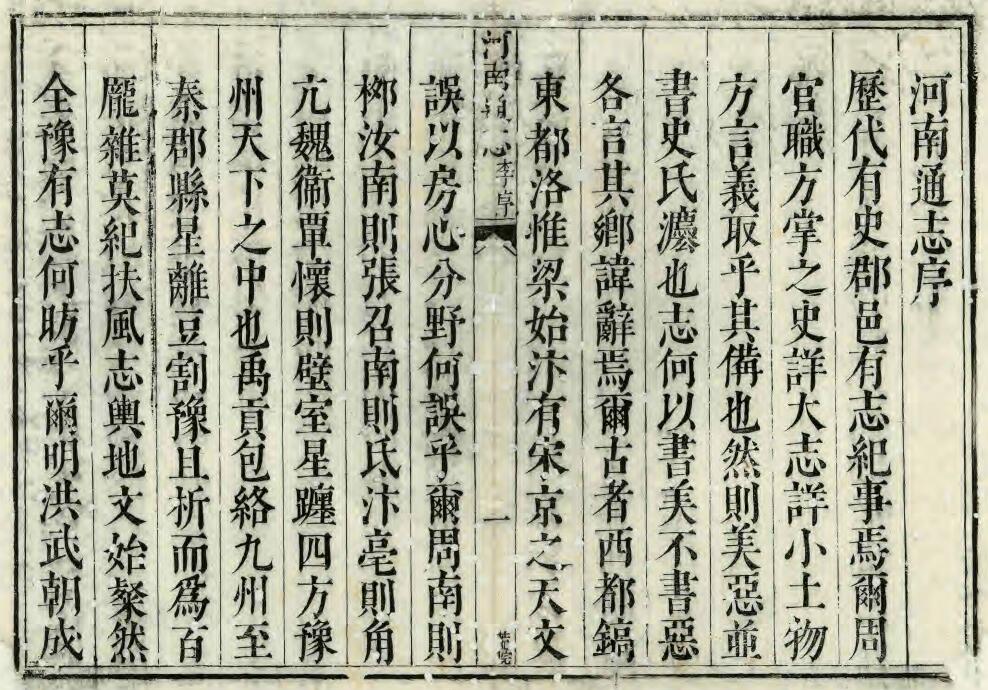 河南通志序
歷代有史郡邑有志紀事焉爾周
官職方掌之史詳大志詳小土物
方言義取乎其備也然則美惡並
書史氏灋也志何以書美不書惡
各言其鄉諱辭焉爾古者西都鎬
東都洛惟梁始汴有宋京之天文
河南通志 李序 一
誤以房心分野何誤乎爾周南則
柳汝南則張召南則氐汴亳則角
亢魏衞覃懷則壁室星躔四方豫
州天下之中也禹貢包絡九州至
秦郡縣星離豆割豫且折而爲百
龐雜莫紀扶風志輿地文始粲然
全豫有志何昉乎爾明洪武朝成